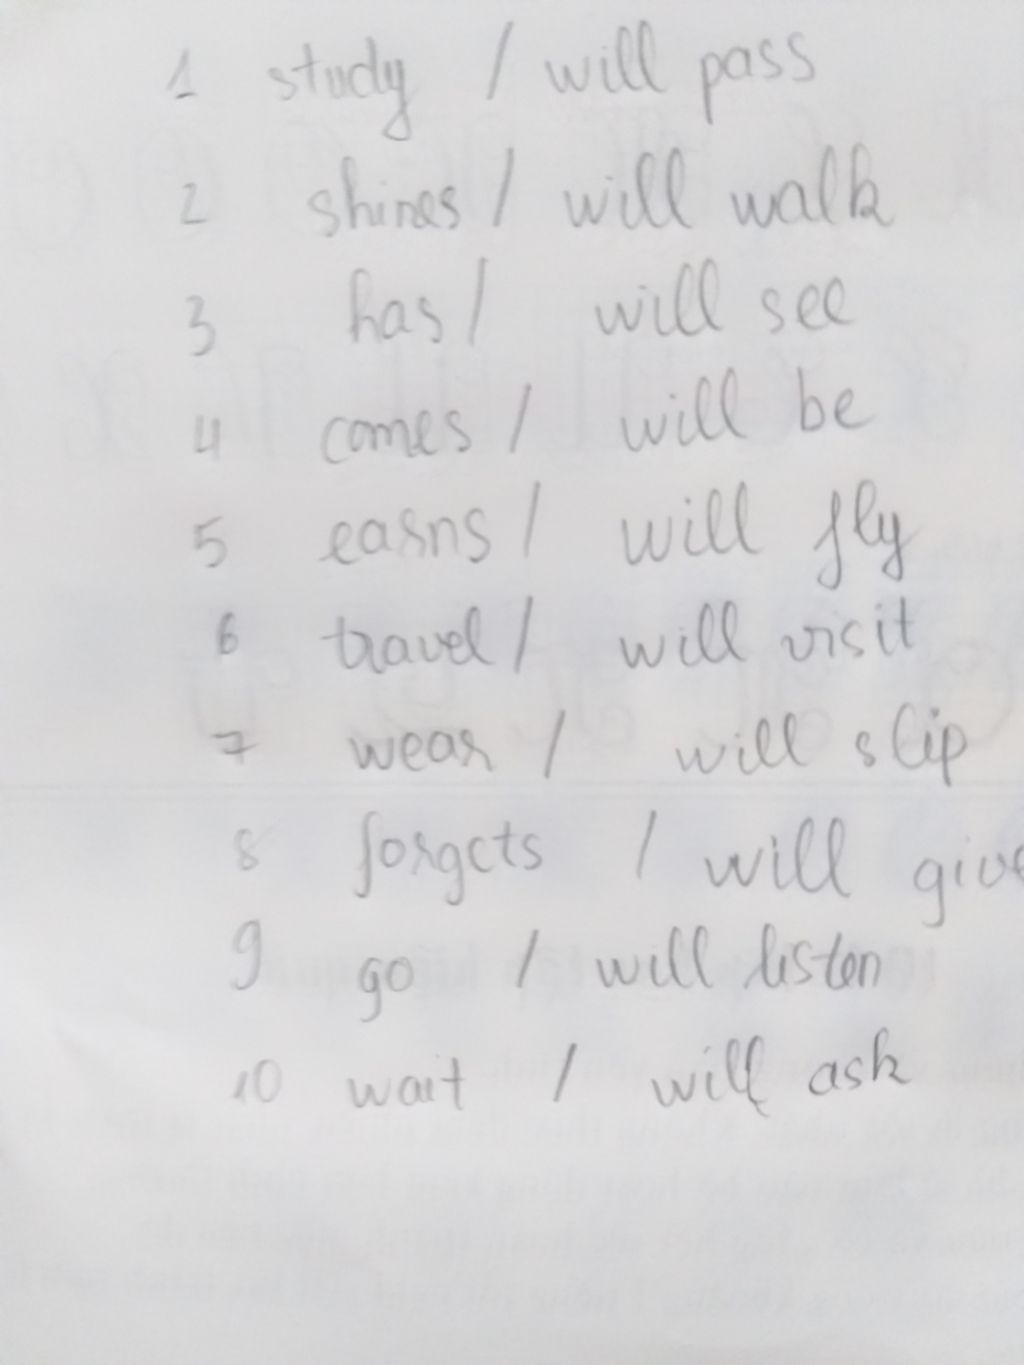 1 study / will pass
2 shines / will walk
3 has / will see
4 comes / will be
5 earns / will fly
6 travel / will visit
7 wear / will slip
8 forgets / will give
9 go / will listen
10 wait / will ask